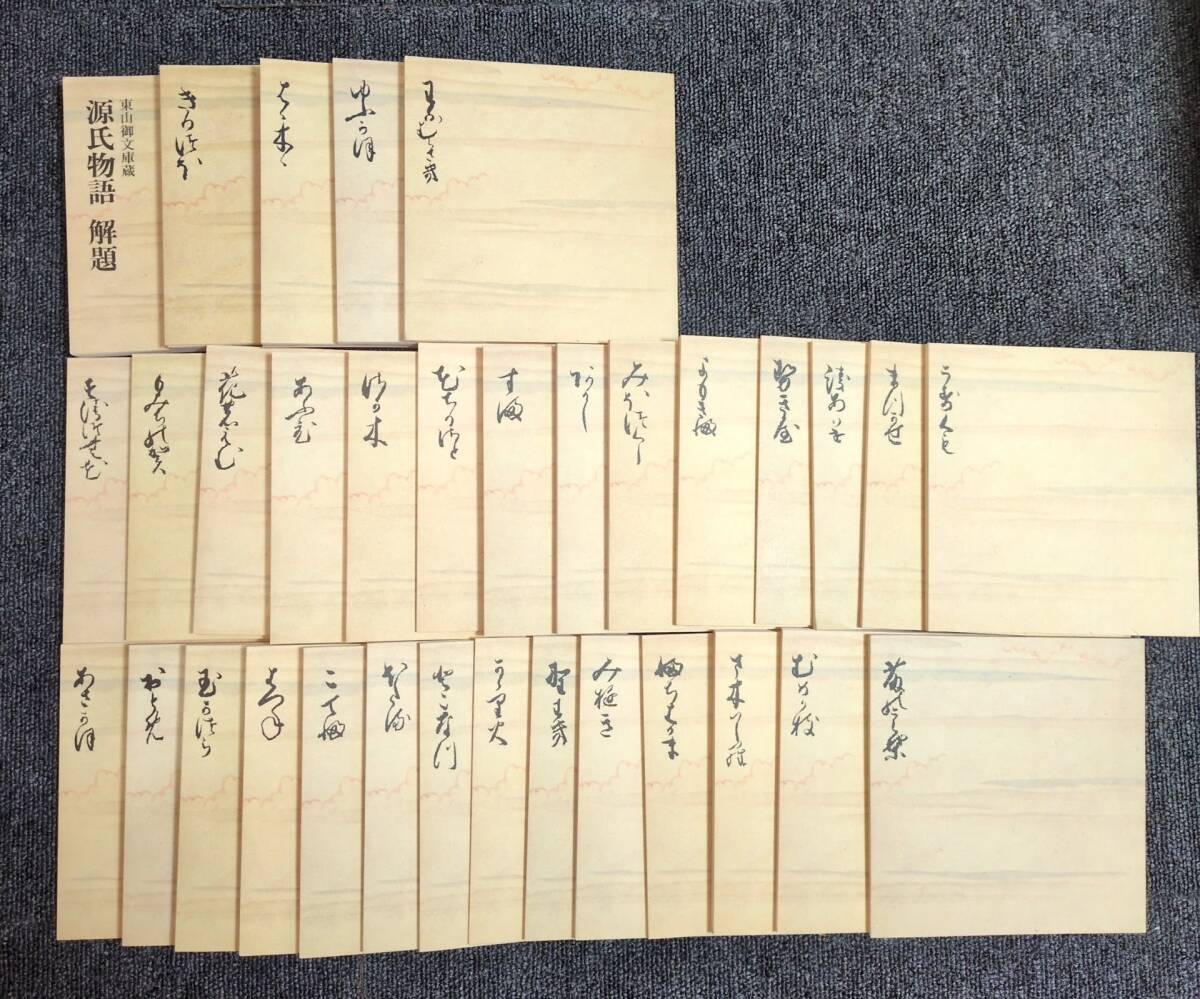 東山御文庫蔵
源氏物語 解題
きりつほ
はゝ木ゝ
ゆふかほ
わかむらさき
すゑつむはな
もみちの賀
花のえむ
あふひ
さか木
花ちるさと
すま
あかし
みをつくし
よもきふ
せき屋
ゑあはせ
まつかせ
うすくも
あさかほ
おとめ
玉かつら
はつね
こてふ
ほたる
とこ夏
かゝり火
野わき
みゆき
ふちはかま
ま木はしら
むめか枝
藤のうら葉